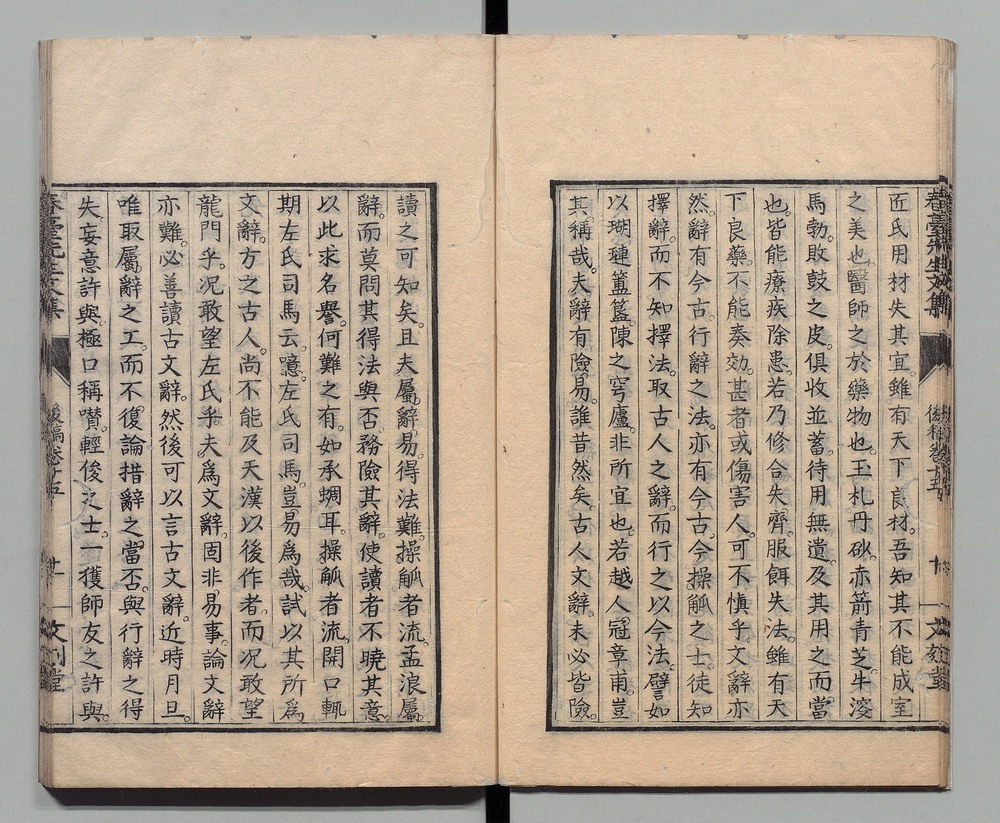 匠氏用材失其宜雖有天下良材。吾知其不能成室
之美也。醫師之於藥物也。玉札丹砂。赤箭青芝。牛溲
馬勃。敗鼓之皮。俱收並蓄。待用無遺。及其用之而當
也。皆能療疾除患。若乃修合失齊。服餌失法。雖有天
下良藥。不能奏効。甚者或傷害人。可不慎乎。文辭亦
然。辭有今古。行辭之法。亦有今古。今操觚之士。徒知
擇辭而不知擇法。取古人之辭。而行之以今法。譬如
以瑚璉簠簋。陳之穹廬。非所宜也。若越人冠章甫。豈
其稱哉。夫辭有險易。誰昔然矣。古人文辭。未必皆險。
讀之可知矣。且夫屬辭易。得法難。操觚者流。孟浪屬
辭。而莫問其得法與否。務險其辭。使讀者不曉其意。
以此求名譽。何難之有。如承蜩耳。操觚者流。開口輒
期左氏司馬云。噫。左氏司馬。豈易爲哉。試以其所爲
文辭。方之古人。尚不能及天漢以後作者。而况敢望
龍門乎。况敢望左氏乎。夫爲文辭。固非易事。論文辭
亦難。必善讀古文辭。然後可以言古文辭。近時月旦。
唯取屬辭之工。而不復論措辭之當否。與行辭之得
失。妄意許與。極口稱嘖。輕俊之士。一獲師友之許與。
春臺先生文集
後稿卷十五
廿一